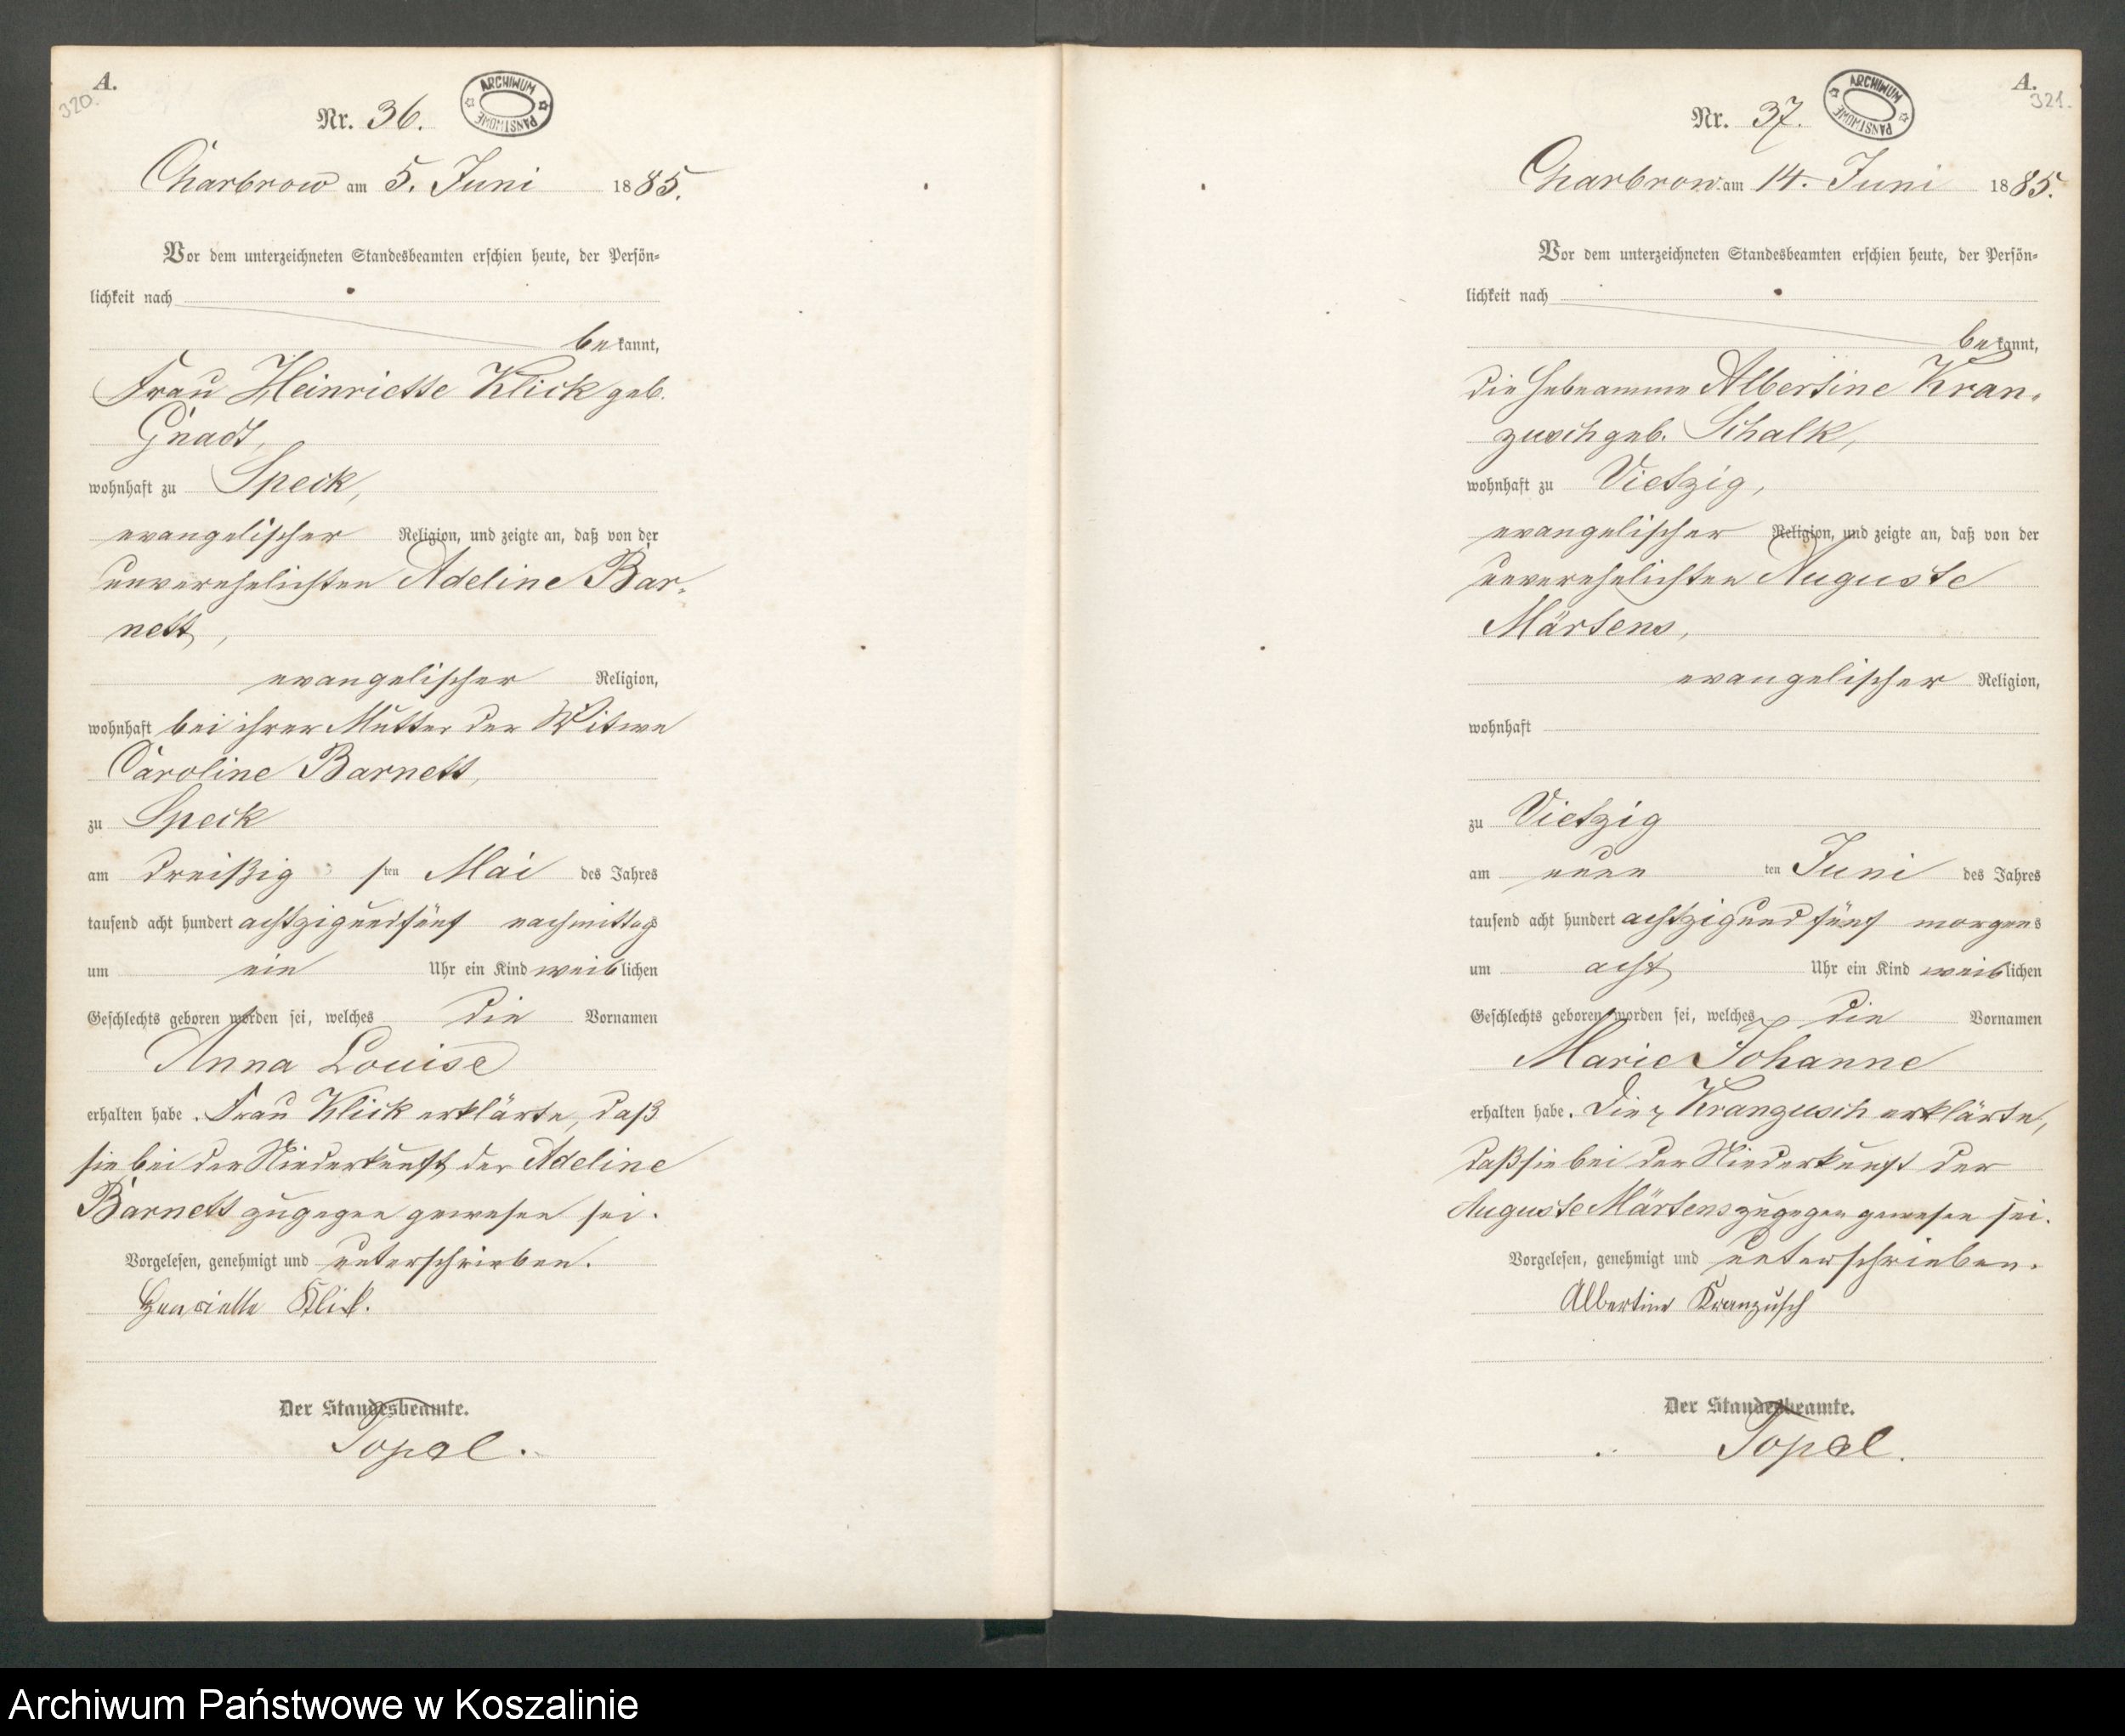 A.
320.
Nr. 36.
ARCHIWUM PAŃSTWOWE
Charbrow am 5. Juni 1885.
Vor dem unterzeichneten Standesbeamten erschien heute, der Persön-
lichkeit nach
bekannt,
Frau Heinriette Klick geb.
Gnadt,
wohnhaft zu Speck,
evangelischer Religion, und zeigte an, daß von der
unverehelichten Adeline Bar-
nett,
evangelischer Religion,
wohnhaft bei ihrer Mutter der Witwe
Caroline Barnett,
zu Speck
am dreißigsten Mai des Jahres
tausend acht hundert achtzigundfünf nachmittags
um ein Uhr ein Kind weiblichen
Geschlechts geboren worden sei, welches die Vornamen
Anna Louise
erhalten habe. Frau Klick erklärte, daß
sie bei der Niederkunft der Adeline
Barnett zugegen gewesen sei.
Vorgelesen, genehmigt und unterschrieben.
Henriette Klick.
Der Standesbeamte.
Topel.
A.
321.
Nr. 37.
ARCHIWUM PAŃSTWOWE
Charbrow am 14. Juni 1885.
Vor dem unterzeichneten Standesbeamten erschien heute, der Persön-
lichkeit nach
bekannt,
die Hebeamme Albertine Kran-
zusch geb. Schalk,
wohnhaft zu Vietzig,
evangelischer Religion, und zeigte an, daß von der
unverehelichten Auguste
Märtens,
evangelischer Religion,
wohnhaft
zu Vietzig
am neun ten Juni des Jahres
tausend acht hundert achtzigundfünf morgens
um acht Uhr ein Kind weiblichen
Geschlechts geboren worden sei, welches die Vornamen
Marie Johanne
erhalten habe. Die Kranzusch erklärte,
daß sie bei der Niederkunft der
Auguste Märtens zugegen gewesen sei.
Vorgelesen, genehmigt und unterschrieben.
Albertine Kranzusch
Der Standesbeamte.
Topel.
Archiwum Państwowe w Koszalinie